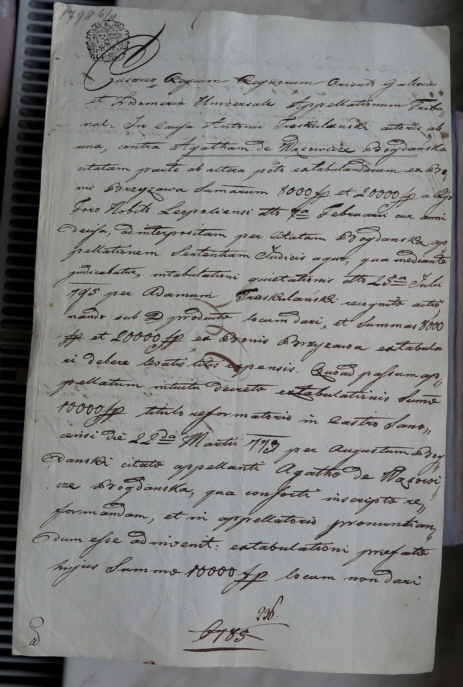 1798 6/11
Cæsareo Regium Regnorum Orient. Galiciæ
et Lodomeriæ Universale Appellationum Tribu-
nal. In Causa Antonii Traskulanski actoris ab
una, contra Agatham de Wasowicze Bogdanska
citatam parte ab altera pto extabulandarum ex Bo-
nis Brzezawa Summarum 8000 fp et 20000 fp a
Foro Nobili Leopoliensi dtto Februarii cur. anni
decisa, ad interpositam per Citatam Bogdanska ap-
pellationem Sententiam Judicis a quo, qua mediante
judicabatur, intabulationi quietationis dtto 25ta Julii
795 per Adamum Traskulanski recognitæ
sub D productæ locum dari, et Summas 8000
fp et 20000 fp ex Bonis Brzezawa extabula-
ri debere levatis litis expensis. Quoad passum ap-
pellatum intuitu decretæ extabulationis Summæ
10000 fp titulo reformatorio in Castro Sano-
censi die 22da Martii 177 per Augustum Bog-
danski citatæ appellanti Agathæ de Wasowi-
cze Bogdanska, qua conforti inscriptæ re-
formandam, et in appellatorio pronuntian-
dum esse adinvenit: extabulationi præfatæ
hujus Summæ 10000 fp locum non dari
6785